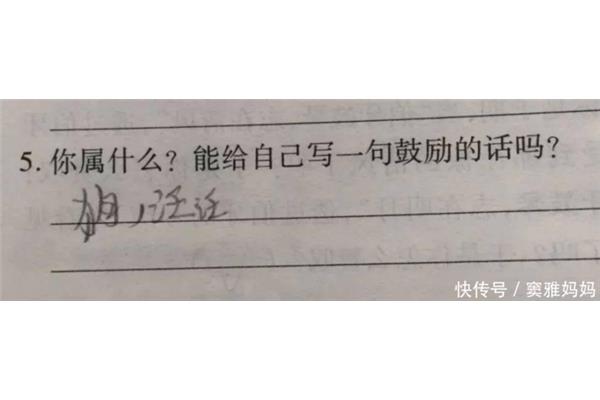 5. 你属什么？能给自己写一句鼓励的话吗？
狗，汪汪
快传号 / 窦雅妈妈